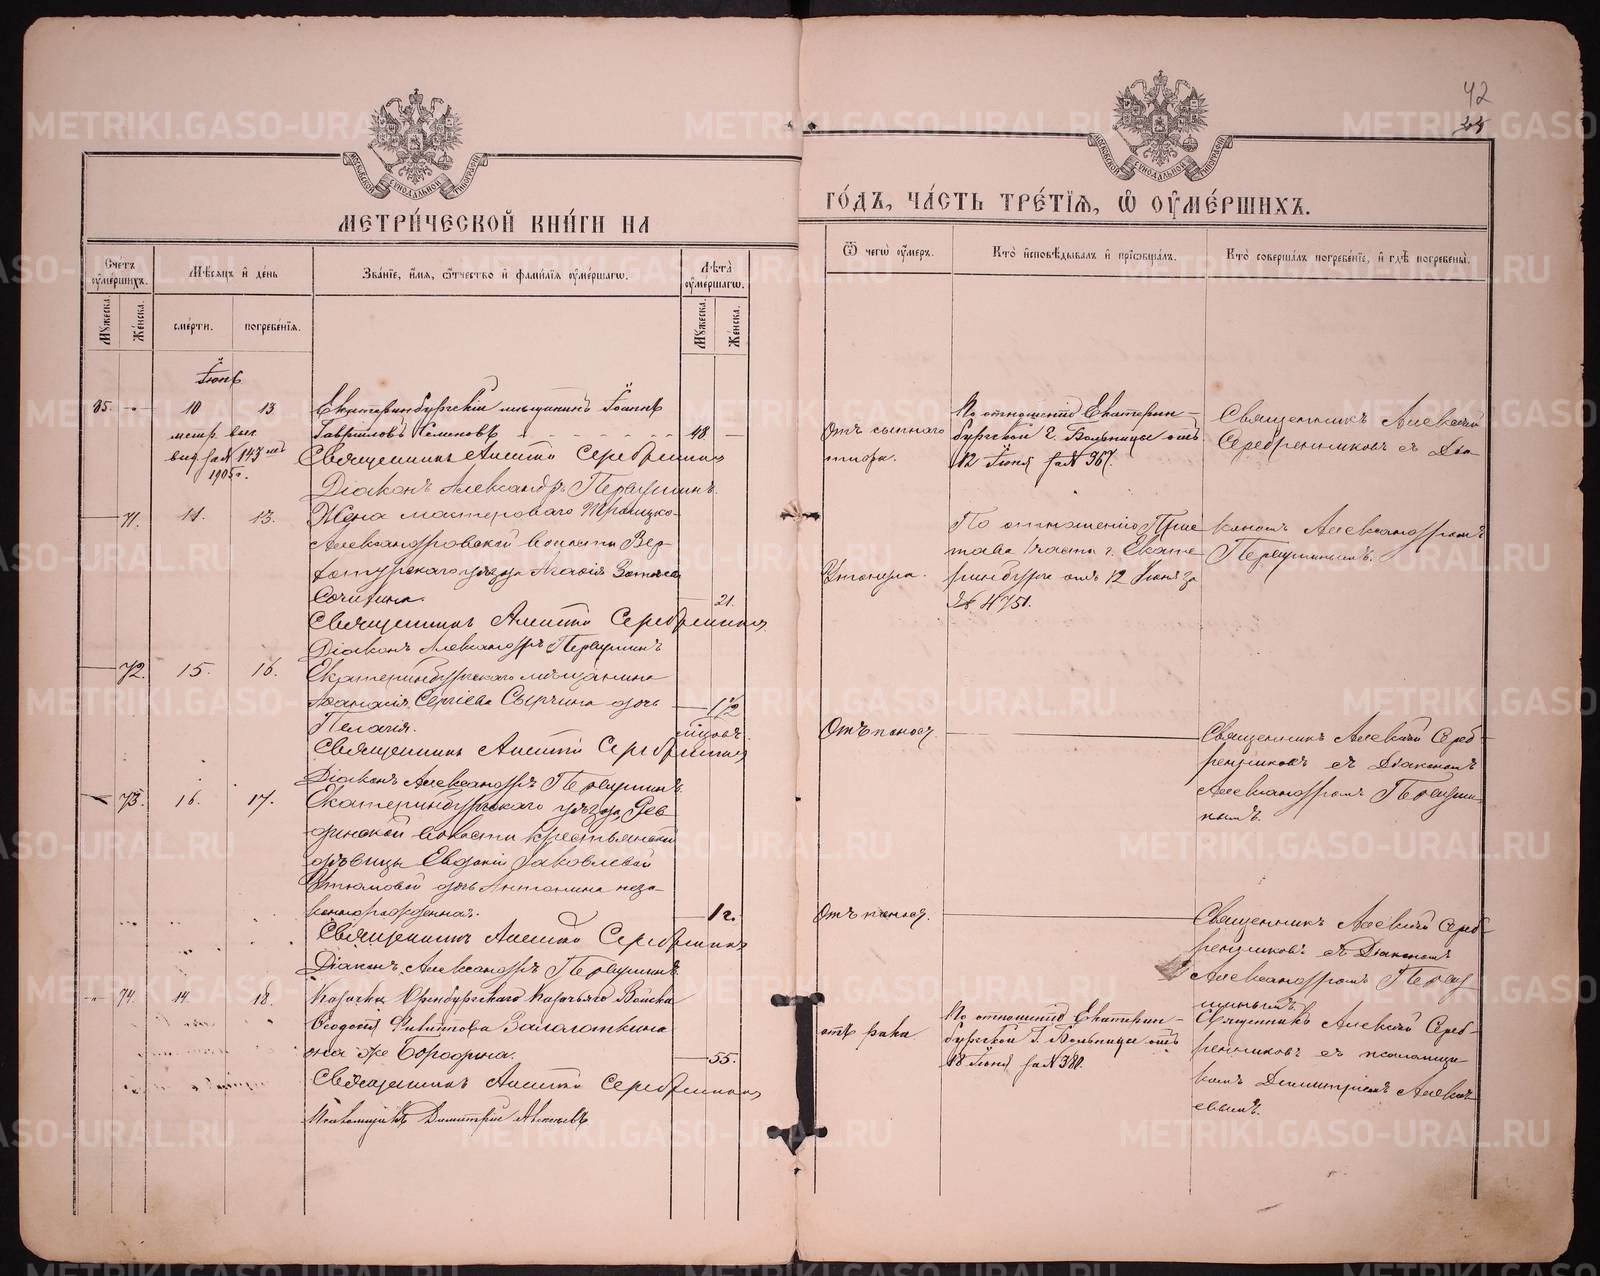 42
МЕТРИ́ЧЕСКОЙ КНИ́ГИ НА
ГО́ДЪ, ЧА́СТЬ ТРЕ́ТІѦ, Ѡ ОУМЕ́РШИХЪ.
Сче́тъ оуме́ршихъ.
Му́жеска.
Же́нска.
Мѣ́сѧцъ и҆ де́нь
сме́рти.
погребе́нїѧ.
Зва́нїе, и҆́мѧ, ѻ҆́тчество и҆ фами́лїѧ оуме́ршагѡ.
Лѣ́та оуме́ршагѡ.
Му́жеска.
Же́нска.
Ѿ чегѡ̀ оу́меръ.
Кто̀ и҆сповѣ́дывалъ и҆ прїѡбща́лъ.
Кто̀ соверша́лъ погребе́нїе, и҆ гдѣ̀ погребены̀.
Іюнь
85. 10 13
метр. вып.
выд. за № 147
1905 г.
Екатеринбургскій мѣщанинъ Іоаннъ
Гавриловъ Семеновъ
48
Священникъ Алексій Серебренников
Діаконъ Александръ Первушинъ.
Отъ сыпнаго
тифа.
По отношенію Екатерин-
бургской Г. Больницы отъ
12 Іюня за № 367.
Священникъ Алексѣй
Серебренниковъ съ Діа
71. 11. 13.
Жена мастероваго Троицко-
Александровской волости Вер-
хотурскаго уѣзда
21.
Священникъ Алексій Серебренников
Діаконъ Александръ Первушинъ
Утонула.
По отношенію Прис
тава 1 части г. Екате
ринбурга отъ 12 Іюня за
№ 4751.
кономъ Александромъ
Первушинымъ.
72. 15. 16.
Екатеринбургскаго мѣщанина
Аѳанасія Сергіева Сырчина дочь
Пелагія.
1 1/2
мѣсяц.
Священникъ Алексій Серебренников
Діаконъ Александръ Первушинъ.
Отъ поноса.
Священникъ Алексѣй Сереб-
ренниковъ съ Діакономъ
Александромъ Первуши
нымъ.
73. 16. 17.
Екатеринбургскаго уѣзда Рев-
динской волости крестьянской
дѣвицы Евдокіи Яковлевой
дочь Антонина неза-
коннорожденная.
1 г.
Священникъ Алексій Серебренников
Діаконъ Александръ Первушинъ.
Отъ поноса.
Священникъ Алексѣй Сереб-
ренниковъ съ Діакономъ
Александромъ Перву
шинымъ.
74. 14. 18.
Казачка Оренбургскаго Казачьяго Войска
Ѳеодосія Филиппова
она же Бородина.
55.
Священникъ Алексій Серебренников
Псаломщикъ Димитрій Алексѣевъ
отъ рака
По отношенію Екатерин-
бургской Г. Больницы отъ
18 Іюня за № 380.
Священникъ Алексѣй Сереб-
ренниковъ съ псаломщи
комъ Димитріемъ Алексѣ-
евымъ.
METRIKI.GASO-URAL.RU